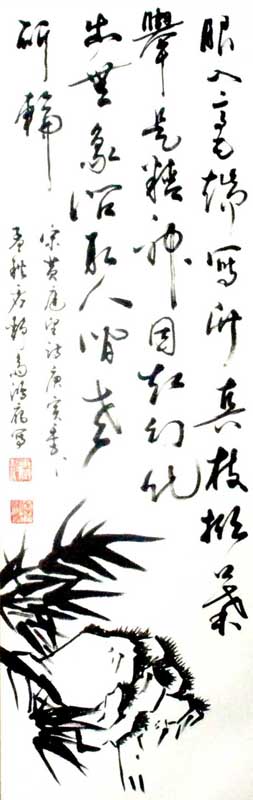 眼入毫端寫竹真枝掀葉
舉是精神因知幻化
出無象問取人間老
斫輪
宋黄庭堅詩庚寅
孟秋高鴻寫